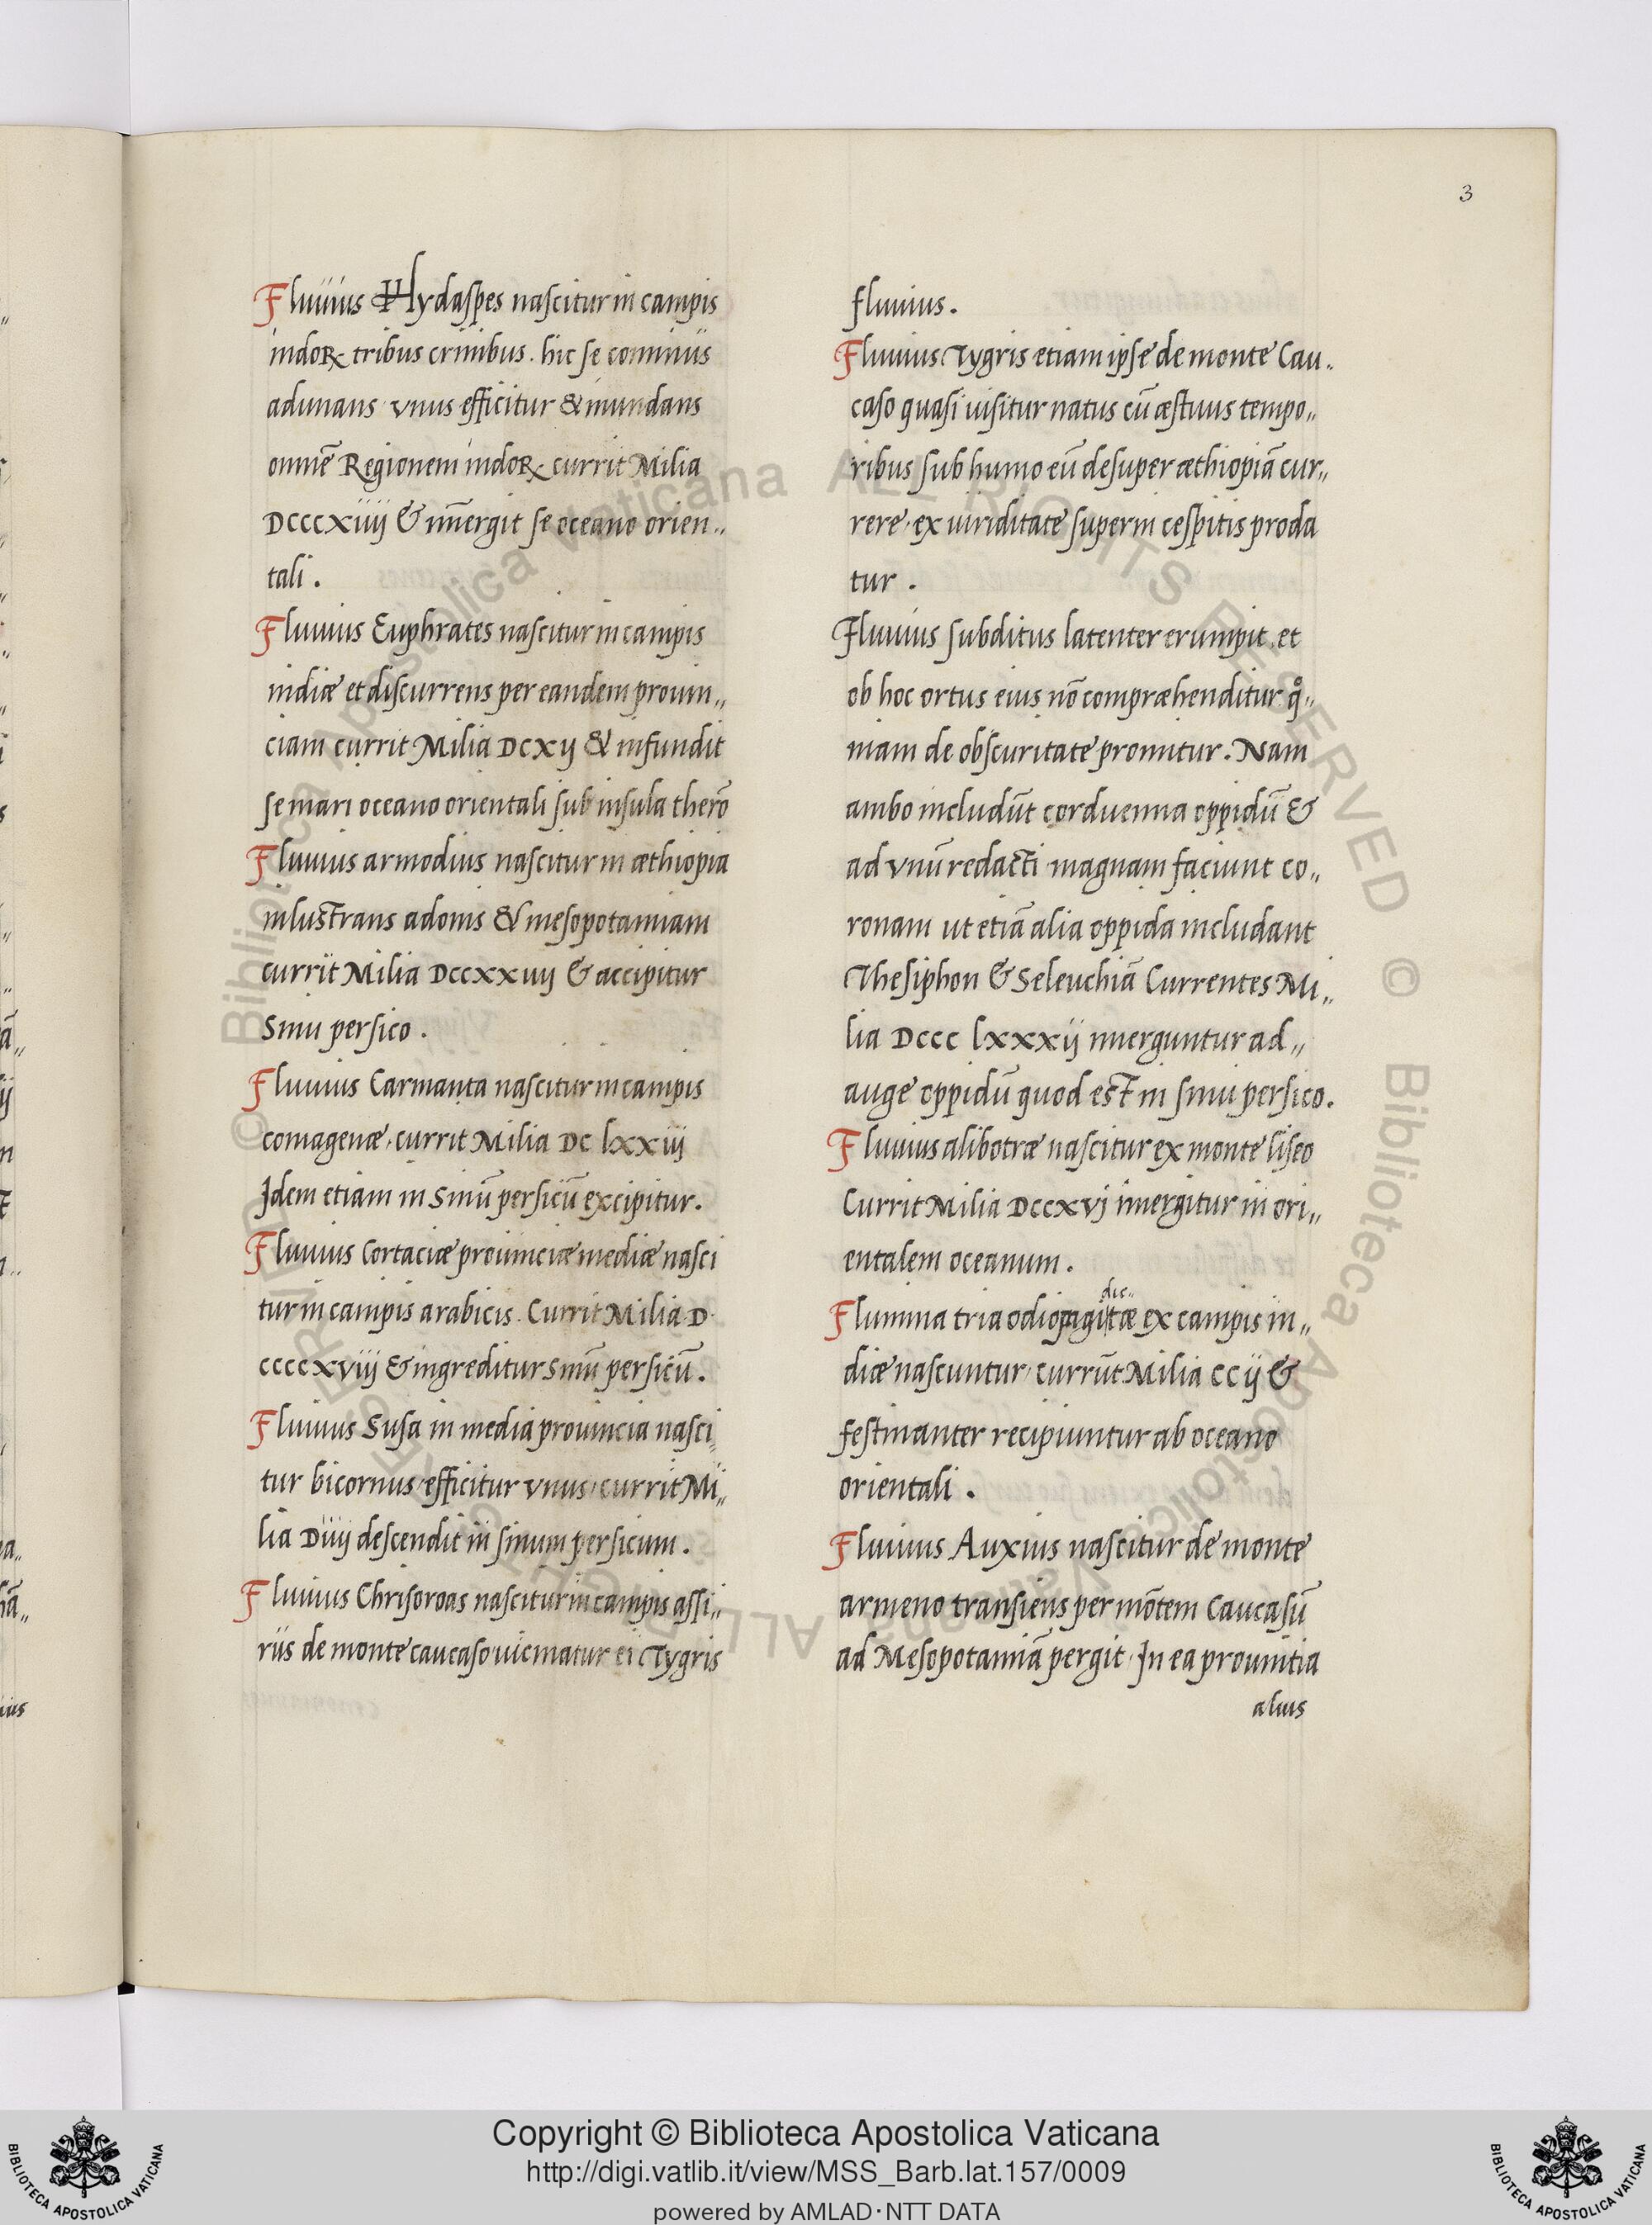 3
Fluuius Hydaspes nascitur in campis
indoꝝ tribus crinibus. hic se cominus
adunans vnus efficitur & inundans
omnē Regionem indoꝝ currit Milia
DCCCXIIIJ & īmergit se oceano orien„
tali.
Fluuius Euphrates nascitur in campis
indiæ et discurrens per eandem prouin„
ciam currit Milia DCXIJ & infundit
se mari oceano orientali sub insula therō
Fluuius armodius nascitur in æthiopia
inlustrans adonis & mesopotamiam
currit Milia DCCXXIIIJ & accipitur
Sinu persico.
Fluuius Carmanta nascitur in campis
comagenæ, currit Milia DC lxxiij
Idem etiam in Sinū persicū excipitur.
Fluuius Cortaciæ prouinciæ mediæ nasci
tur in campis arabicis. Currit Milia D
CCCCXVIIJ & ingreditur Sinū persicū.
Fluuius Susa in media prouincia nasci„
tur bicornus, efficitur vnus, currit Mi„
lia DIIIJ descendit in sinum persicum.
Fluuius Chrisoroas nascitur in campis assi„
riis de monte caucaso uicinatur ei Tygris
fluuius.
Fluuius Tygris etiam ipse de monte Cau„
caso quasi uisitur natus cū æstiuus tempo„
ribus sub humo eū desuper æthiopiā cur„
rere, ex uiriditate superni cespitis proda
tur.
Fluuius subditus latenter erumpit, et
ob hoc ortus eius nō compræhenditur qͦ„
niam de obscuritate promitur. Nam
ambo includūt corduenna oppidū &
ad vnū redacti magnam faciunt co„
ronam ut etiā alia oppida includant
Thesiphon & Seleuchiā Currentes Mi„
lia DCCC lxxxij merguntur ad„
auge oppidū quod est in sinu persico.
Fluuius alibotræ nascitur ex monte liseo
Currit Milia DCCXVJ īmergitur in ori„
entalem oceanum.
dic„
Flumina tria odiopagitæ ex campis in„
diæ nascuntur, currūt Milia CCIJ &
festinanter recipiuntur ab oceano
orientali.
Fluuius Auxius nascitur de monte
armeno transiens per mōtem Caucasū
ad Mesopotamiā pergit. In ea prouintia
alius
© Biblioteca Apostolica Vaticana ALL RIGHTS RESERVED © Biblioteca Apostolica Vaticana ALL RIGHTS RESERVED
Copyright © Biblioteca Apostolica Vaticana
http://digi.vatlib.it/view/MSS_Barb.lat.157/0009
powered by AMLAD·NTT DATA
BIBLIOTECA APOSTOLICA VATICANA
BIBLIOTECA APOSTOLICA VATICANA